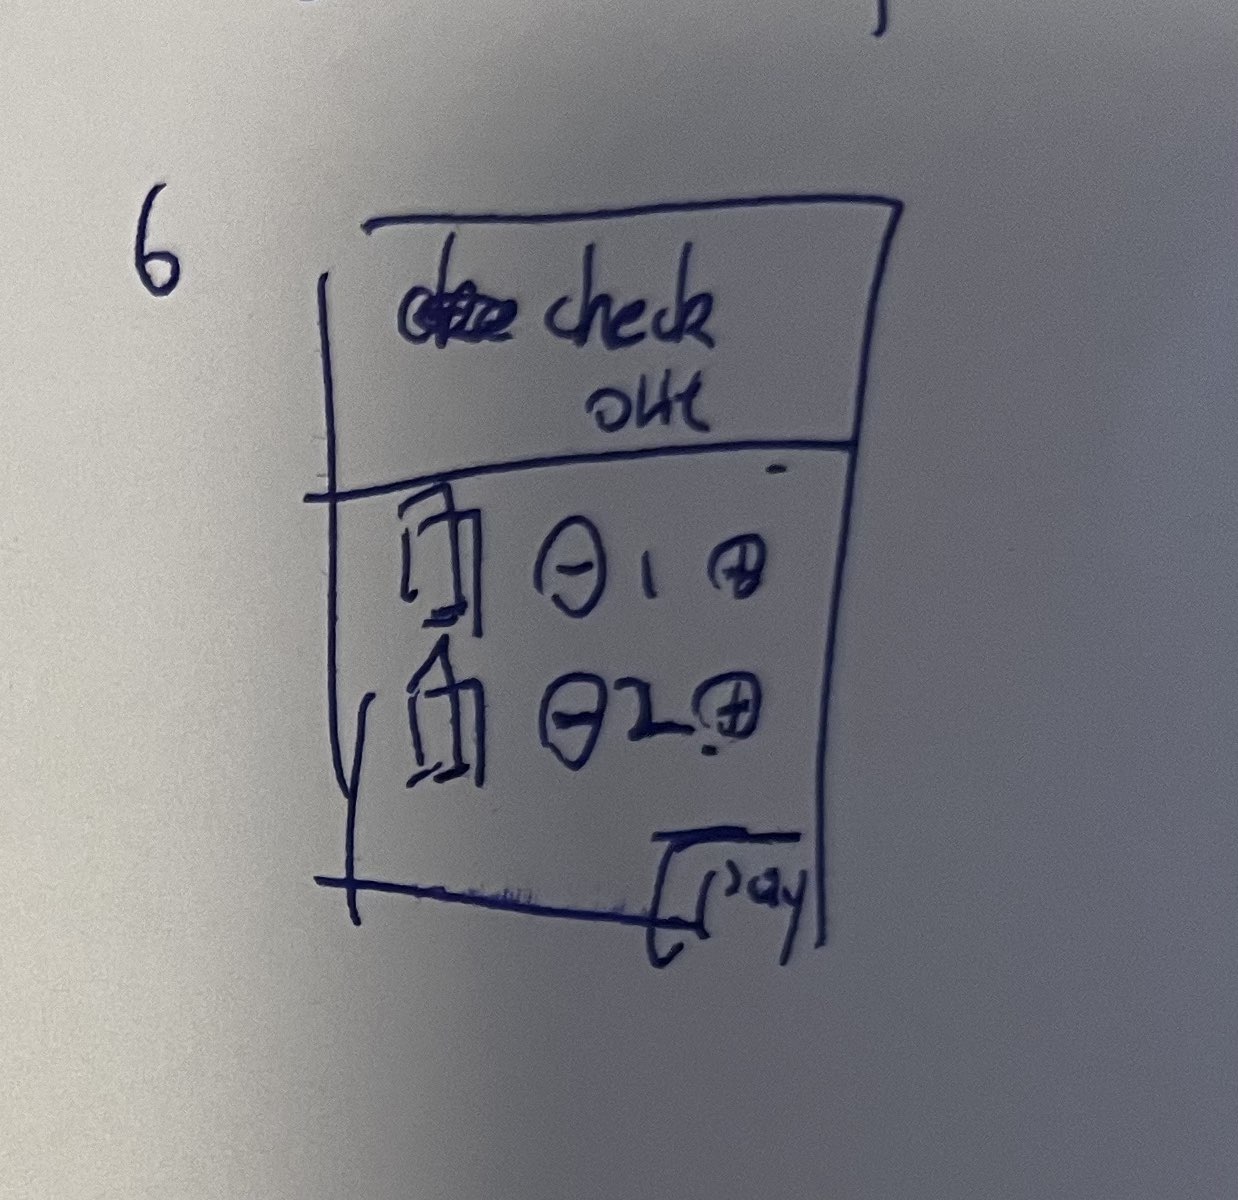 6
check
out
⊖ 1 ⊕
⊖ 2 ⊕
Pay